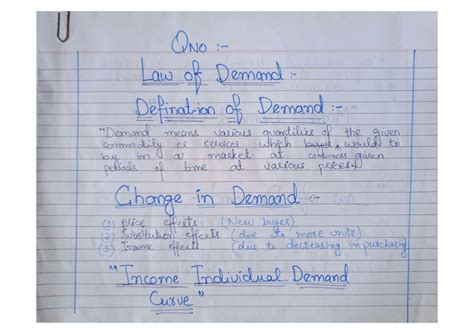 QNO :-
Law of Demand :-
Defination of Demand :-
"Demand means various quantities of the given
commodity or services which buyers would to
buy in a market at given
periods of time at various prices.
Change in Demand :-
(1) Price effects (New buyer)
(2) Substitution effects (due to more units)
(3) Income effects (due to decreasing in purchasing
"Income Individual Demand
Curve"